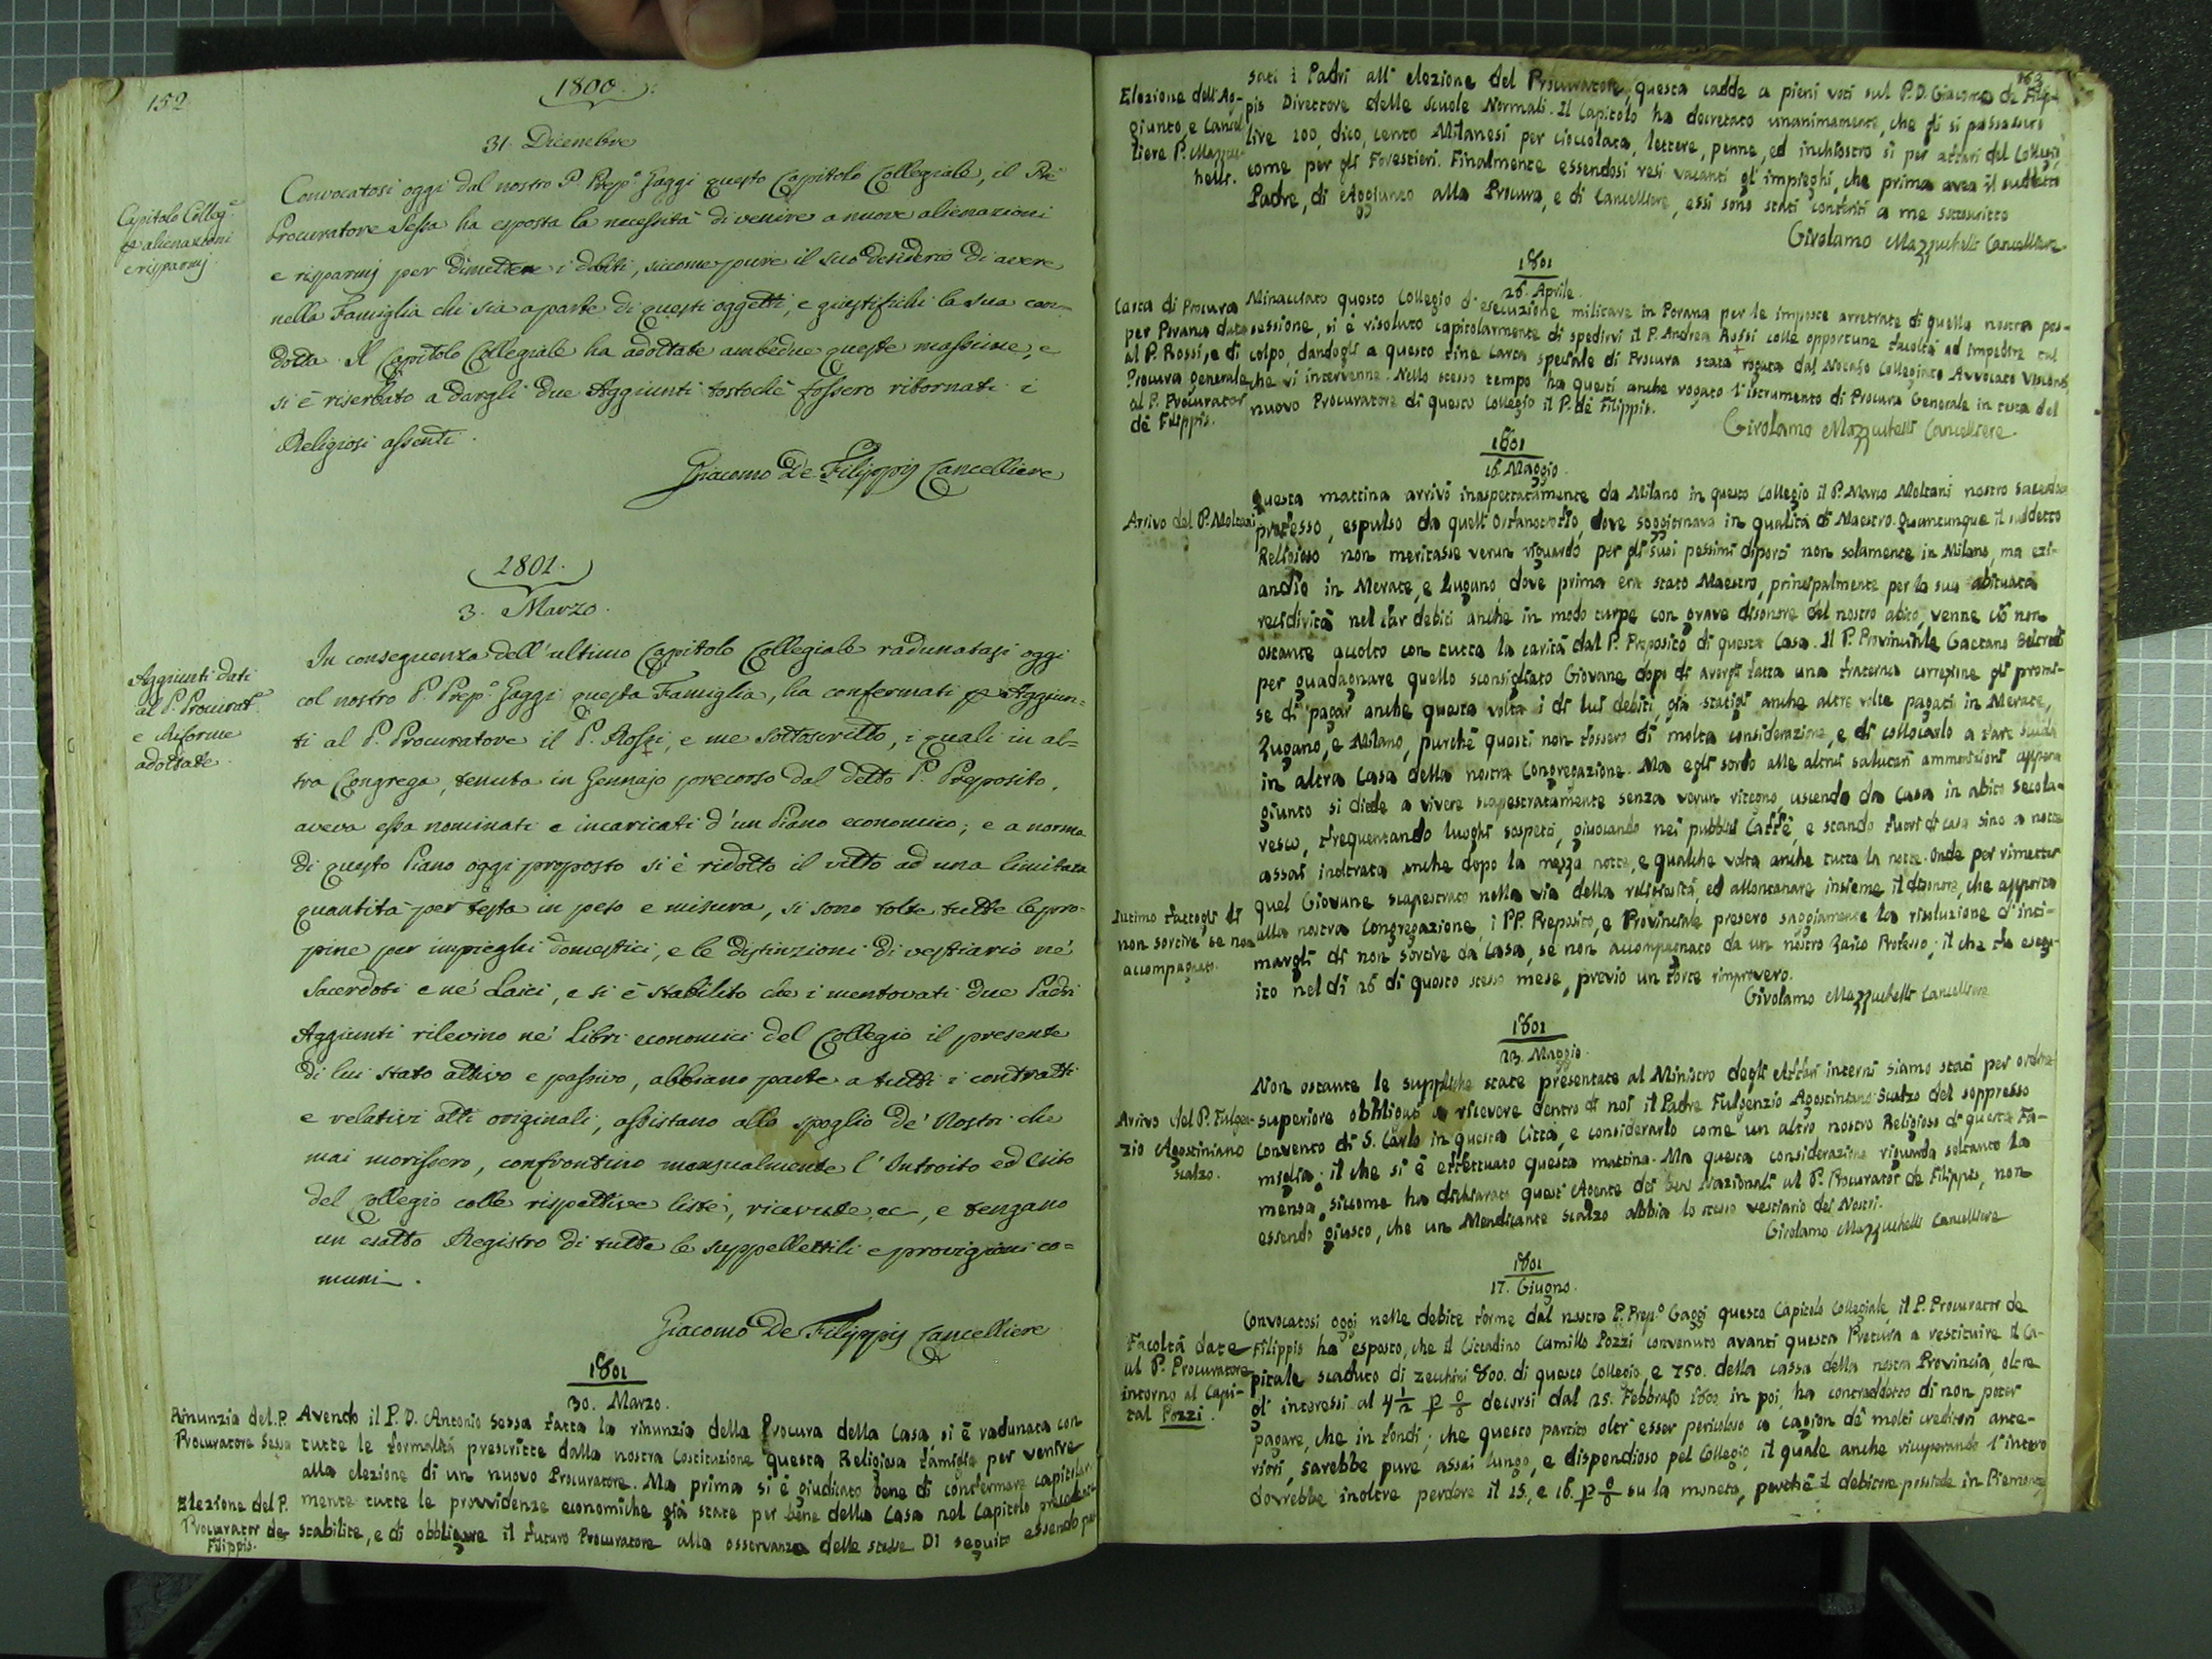 152
1800.
31. Dicembre
Capitolo Colleg.e
p alienazioni
e risparmj.
Convocatosi oggi dal nostro P. Prep.o Gaggi questo Capitolo Collegiale, il Pre
Procuratore Sessa ha esposta la necessità di venire a nuove alienazioni
e risparmj per dimettere i debiti, siccome pure il suo desiderio di avere
nella Famiglia chi sia a parte di questi oggetti, e giustifichi la sua con-
dotta. Il Capitolo Collegiale ha adottate ambedue queste massime, e
si è riserbato a dargli due Aggiunti tostochè fossero ritornati i
Religiosi assenti.
Giacomo De Filippis Cancelliere
1801.
3. Marzo.
Aggiunti dati
al P. Procurat.e
e Riforme
adottate.
In conseguenza dell'ultimo Capitolo Collegiale radunatasi oggi
col nostro P. Prep.o Gaggi questa Famiglia, ha confermati p Aggiun-
ti al P. Procuratore il P. Rossi, e me sottoscritto, i quali in al-
tra Congrega, tenuta in Gennajo precorso dal detto P. Preposito,
aveva essa nominati e incaricati d'un Piano economico; e a norma
di questo Piano oggi proposto si è ridotto il vitto ad una limitata
quantità per testa in peso e misura, si sono tolte tutte le pro-
pine per impieghi domestici, e le distinzioni di vestiario nè
Sacerdoti e nè Laici, e si è stabilito che i mentovati due Padri
Aggiunti rilevino nè Libri economici del Collegio il presente
di lui stato attivo e passivo, abbiano parte a tutti i contratti
e relativi atti originali, assistano allo spoglio de' Nostri che
mai morissero, confrontino mensualmente l'Introito ed Esito
del Collegio colle rispettive liste, ricevute ec, e tengano
un esatto Registro di tutte le suppellettili e provigioni co-
muni.
Giacomo De Filippis Cancelliere
1801
30. Marzo.
Rinunzia del P.
Procuratore Sessa
Avendo il P. D. Antonio Sessa fatta la rinunzia della Procura della Casa si è radunata con
tutte le formalità prescritte dalla nostra Costituzione questa Religiosa famiglia per venire
alla elezione di un nuovo Procuratore. Ma prima si è giudicato bene di confermare capitolar
Elezione del P.
Procurator de
Filippis.
mente tutte le provvidenze economiche già state per bene della Casa nel Capitolo precedente
stabilite, e di obbligare il futuro Procuratore alla osservanza delle stesse. Di seguito essendo pas
163
Elezione dell'Ag-
giunto, e Cancel
liere P. Mazzuc-
helli.
sati i Padri all'elezione del Procuratore, questa cadde a pieni voti sul P. D. Giacomo de Filip-
pis Direttore delle Scuole Normali. Il Capitolo ha decretato unanimamente, che gli si passassero
lire 100, dico, cento Milanesi per cioccolata, lettere, penne, ed inchiostro sì per affari del Collegio
come per gli Forestieri. Finalmente essendosi resi vacanti gl'impieghi, che prima avea il suddetto
Padre, di Aggiunto alla Procura, e di Cancelliere, essi sono stati conferiti a me sottoscritto
Girolamo Mazzuchelli Cancelliere.
1801
26. Aprile.
Carta di Procura
per Porana data
al P. Rossi, e di
Procura generale
al P. Procurator
dè Filippis.
Minacciato questo Collegio d'esecuzione militare in Porana per le imposte arretrate di quella nostra pos-
sessione, si è risoluto capitolarmente di spedirvi il P. Andrea Rossi colle opportune facoltà ad impedire tal
colpo, dandogli a questo fine Carta speciale di Procura stata rogata dal Notaio Collegiato Avvocato Visconti
che vi intervenne. Nello stesso tempo ha questi anche rogato l'istrumento di Procura Generale in testa del
nuovo Procuratore di questo Collegio il P. dè Filippis.
Girolamo Mazzuchelli Cancelliere.
1801
16. Maggio.
Arrivo del P. Moltani
Questa mattina arrivò inaspettatamente da Milano in questo Collegio il P. Marco Moltani nostro sacerdote
professo, espulso da quell'Orfanotrofio, dove soggiornava in qualità di Maestro. Quantunque il suddetto
Religioso non meritasse verun riguardo per gli suoi pessimi diporti non solamente in Milano, ma ezi-
andio in Merate, e Lugano dove prima era stato Maestro, principalmente per la sua abituata
recidività nel far debiti anche in modo turpe con grave disonore del nostro abito, venne ciò non
ostante accolto con tutta la carità dal P. Preposito di questa Casa. Il P. Provinciale Gaetano
per guadagnare quello sconsigliato Giovane dopo di avergli fatta una fraterna correzione gli promi-
se di pagar anche questa volta i di lui debiti, già statigli anche altre volte pagati in Merate,
Lugano, e Milano, purchè questi non fossero di molta considerazione, e di collocarlo a fare scuola
in altra Casa della nostra Congregazione. Ma egli sordo alle altrui salutari ammonizioni appena
giunto si diede a vivere scapestratamente senza verun ritegno, uscendo da Casa in abito secola-
resco, frequentando luoghi sospetti, giuocando nei pubblici Caffè, e stando fuori di casa sino a notte
assai inoltrata anche dopo la mezza notte, e qualche volta anche tutta la notte. Onde per rimetter
Intimo fattogli di
non sortire se non
accompagnato.
quel Giovane scapestrato nella via della religiosità, ed allontanare insieme il disonore, che apporta
alla nostra Congregazione, i PP. Preposito, e Provinciale presero saggiamente la risoluzione d'inti-
margli di non sortire da Casa, se non accompagnato da un nostro Laico Professo; il che fu esegui-
to nel dì 26 di questo stesso mese, previo un forte rimprovero.
Girolamo Mazzuchelli Cancelliere
1801
23. Maggio.
Arrivo del P. Fulgen-
zio Agostiniano
Scalzo.
Non ostante le suppliche state presentate al Ministro degli Affari interni siamo stati per ordine
superiore obbligati a ricevere dentro di noi il Padre Fulgenzio Agostiniano Scalzo del soppresso
Convento di S. Carlo in questa Città, e considerarlo come un altro nostro Religioso di questa Fa-
miglia; il che si è effettuato questa mattina. Ma questa considerazione riguarda soltanto la
mensa, siccome ha dichiarato quest'Agente dei beni Nazionali al P. Procurator de Filippis, non
essendo giusto, che un Mendicante scalzo abbia lo stesso vestiario dei Nostri.
Girolamo Mazzuchelli Cancelliere
1801
17. Giugno.
Facoltà date
al P. Procuratore
intorno al Capi-
tal Pozzi.
Convocatosi oggi nelle debite forme dal nostro P. Prep.o Gaggi questo Capitolo Collegiale il P. Procurator de
Filippis ha esposto, che il Cittadino Camillo Pozzi convenuto avanti questa Pretura a restituire il Ca-
pitale scaduto di zecchini 800. di questo Collegio, e 750. della cassa della nostra Provincia, oltre
gl'interessi al 4 1/2 p 0/0 decorsi dal 25. Febbrajo 1800 in poi, ha contraddotto di non poter
pagare, che in fondi; che questo partito oltr'esser pericoloso a cagion dè molti creditori ante-
riori, sarebbe pure assai lungo, e dispendioso pel Collegio, il quale anche ricuperando l'intero
dovrebbe inoltre perdere il 15, e 16. p 0/0 su la moneta, perchè il debitore possiede in Piemonte,